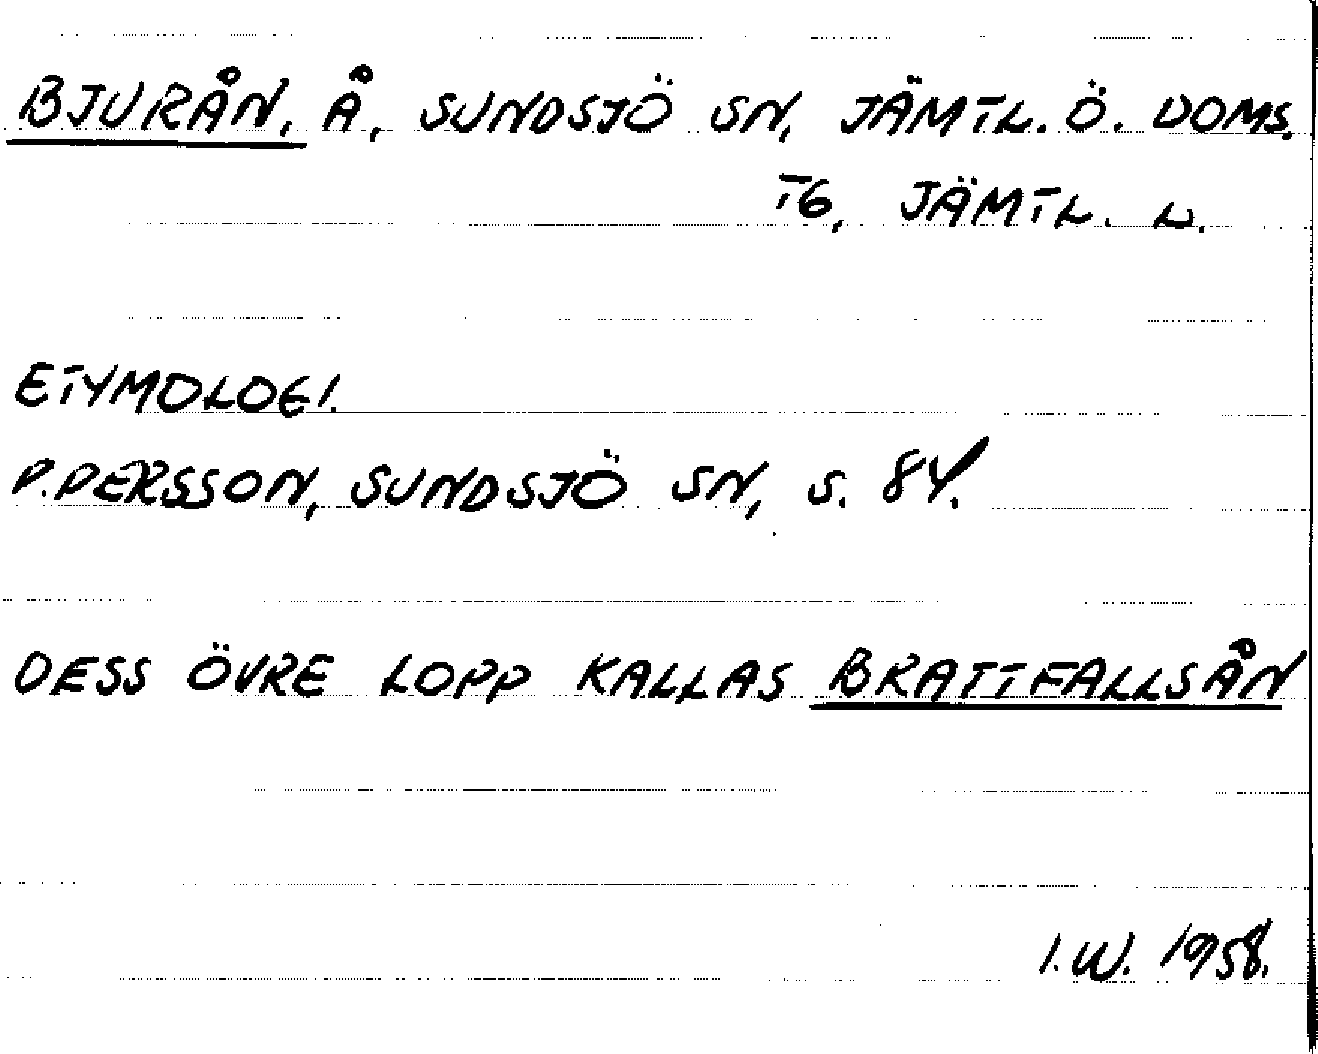 BJURÅN, Å, SUNDSJÖ SN, JÄMTL. Ö. DOMS.
TG, JÄMTL. L.
ETYMOLOGI.
P. PERSSON, SUNDSJÖ SN, S. 84.
DESS ÖVRE LOPP KALLAS BRATTFALLSÅN
I.W. 1958.